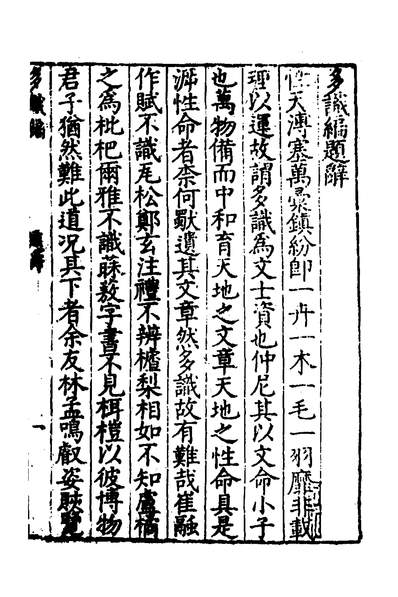 多識編題辭
性天溥塞萬彙鎮紛即一卉一木一毛一羽靡非載
理以運故謂多識為文士資也仲尼其以文命小子
也萬物備而中和育天地之文章天地之性命具是
泝性命者柰何歇遺其文章然多識故有難哉崔融
作賦不識尨松鄭玄注禮不辨樝梨相如不知盧橘
之為枇杷爾雅不識蔴敖字書不見栮榿以彼博物
君子猶然難此道况其下者余友林孟鳴叡姿䀹覽
多識編
題辭
一